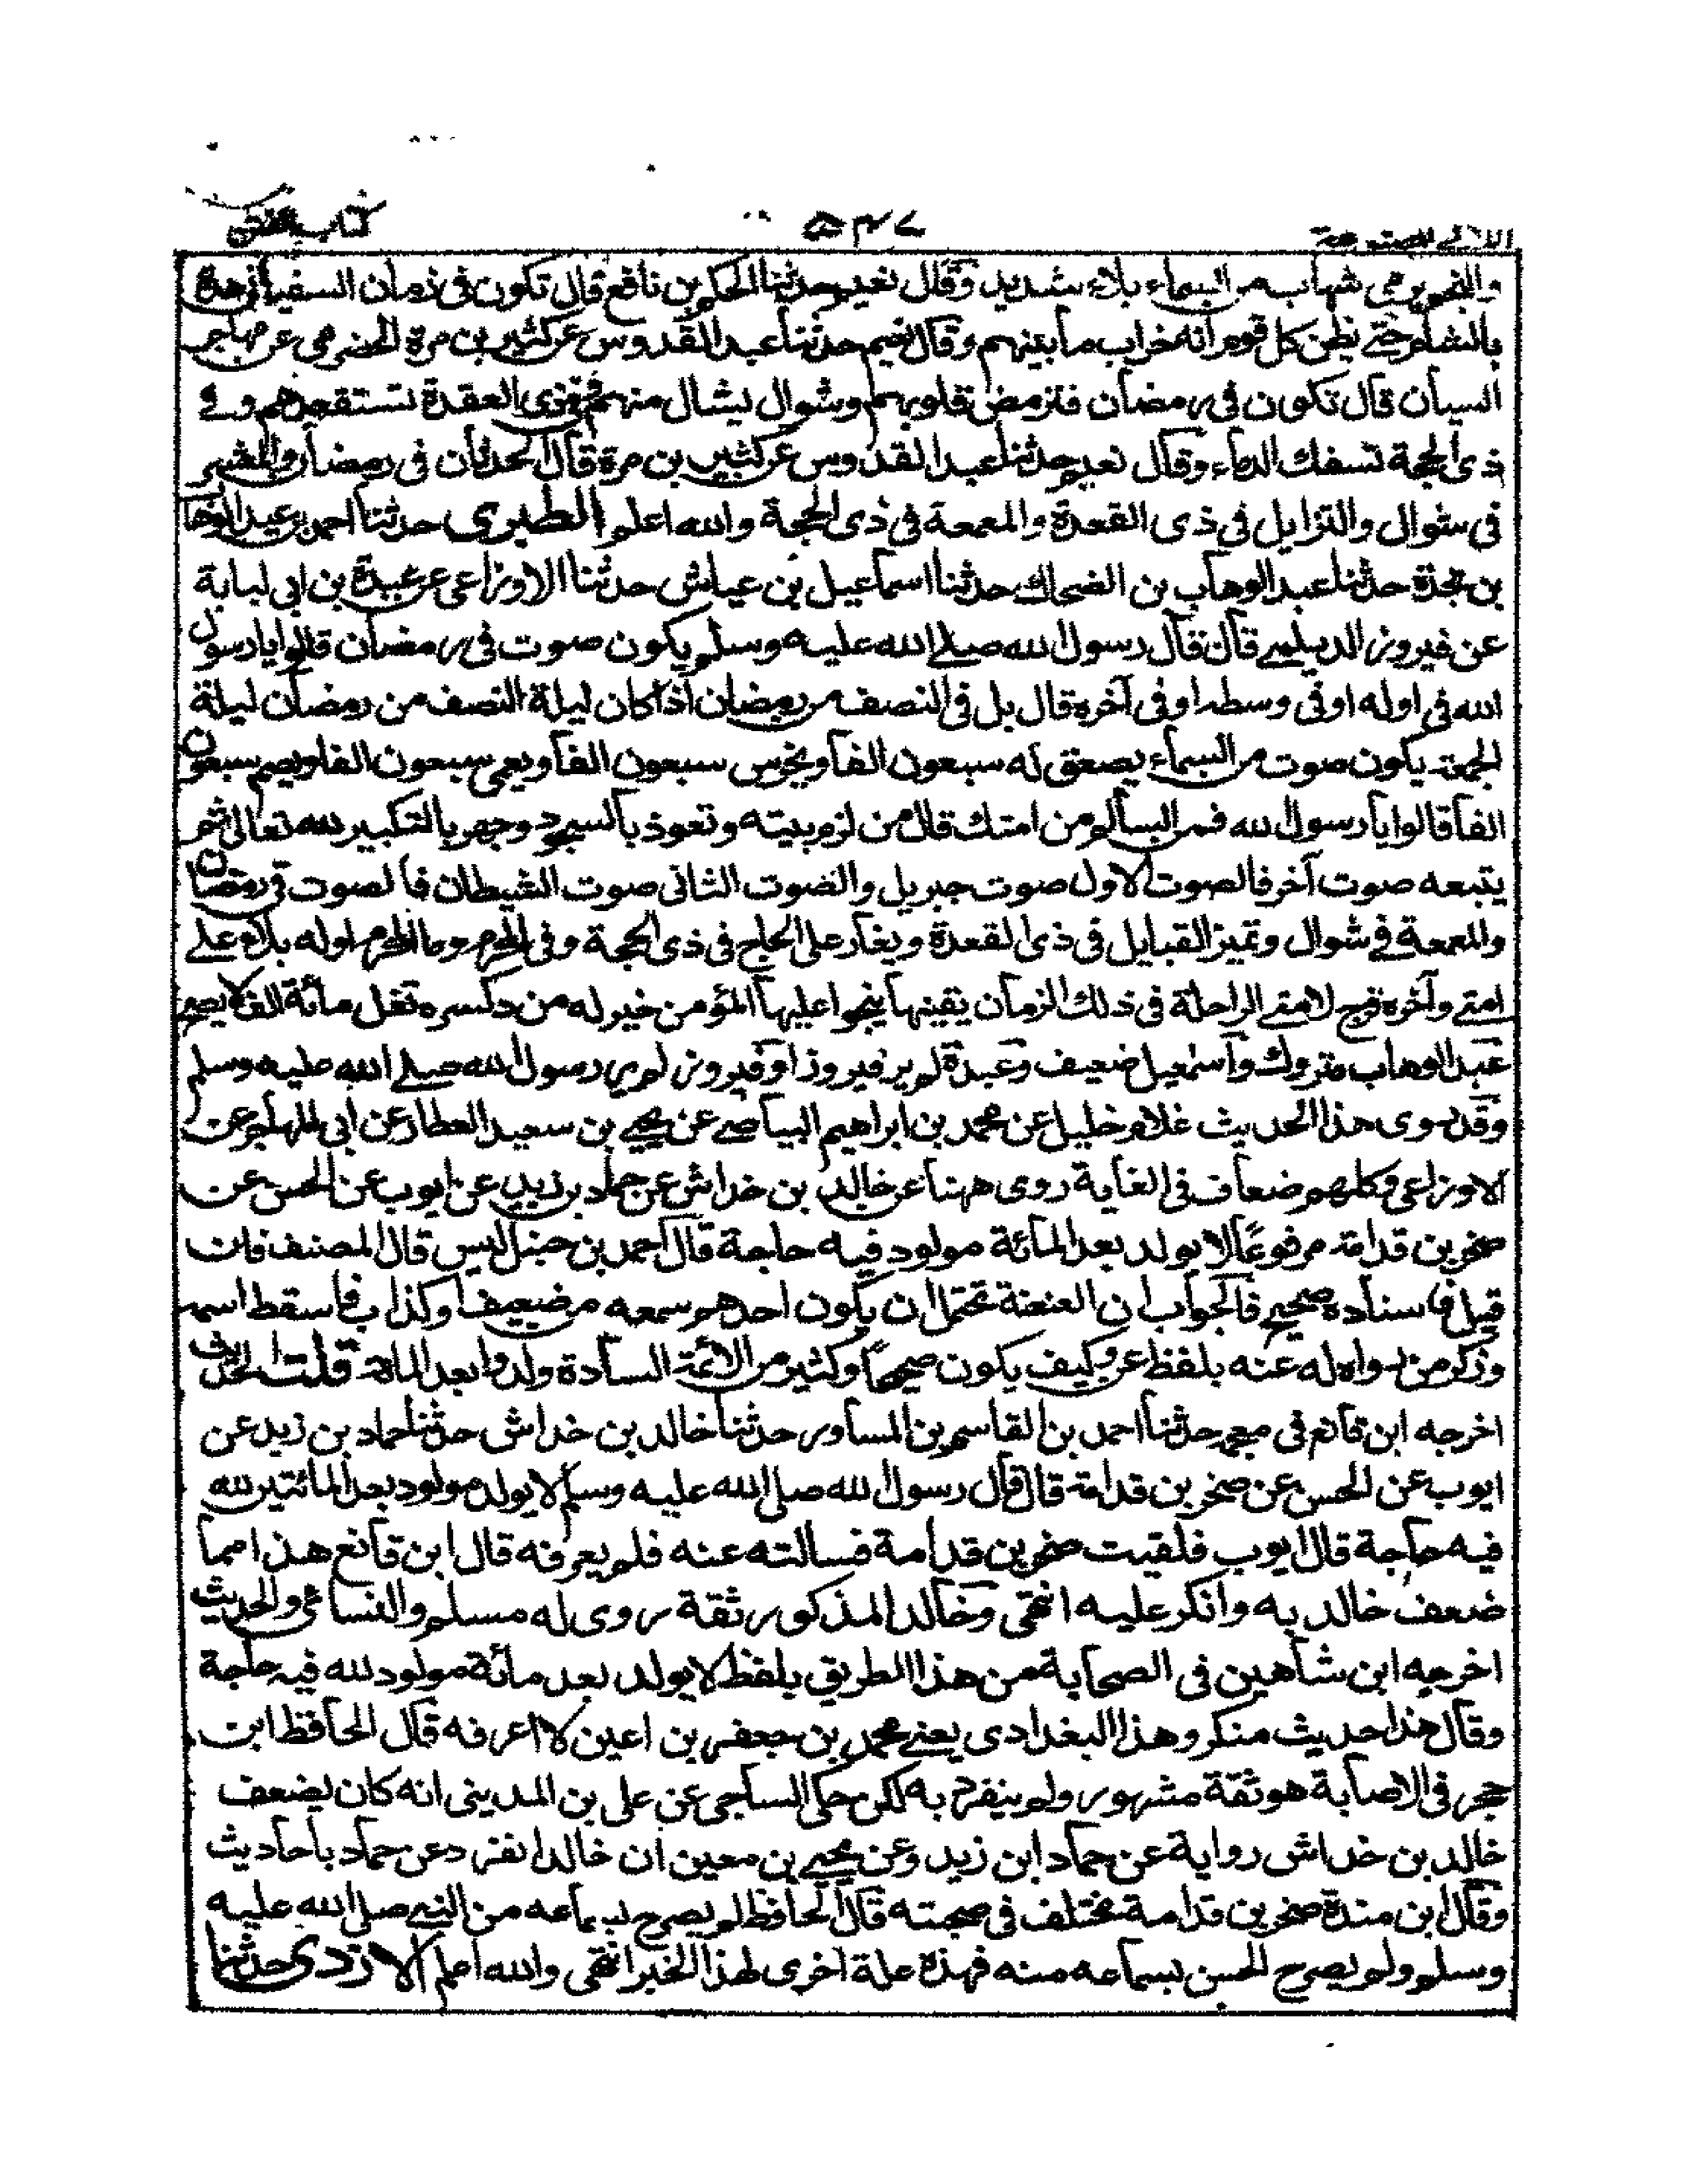 اللآلئ المصنوعة ٥٣٧ كتاب الفتن
والنجم يرمى شهاب من السماء بلاء شديد وقال نعيم حدثنا الحكم بن نافع قال تكون فى زمان السفيانى هدة
بالشام حتى يظن كل قوم انه خراب ما يتبينهم وقال نعيم حدثنا عبد القدوس عن كثير بن مرة الحضرمى عن مهاجر
السيان قال تكون فى رمضان فترمض قلوبهم وشوال يشال منهم وفى ذى العقدة تستقعدهم وفى
ذى الحجة تسفك الدماء وقال نعيم حدثنا عبد القدوس عن كثير بن مرة قال الحدثان فى رمضان والمشير
فى شوال والتزايل فى ذى القعدة والمعمعة فى ذى الحجة والله اعلم الطبرى حدثنا احمد بن عبد الوهاب
بن نجدة حدثنا عبد الوهاب بن الضحاك حدثنا اسماعيل بن عياش حدثنا الاوزاعى عن عبدة بن ابى لبابة
عن فيروز الديلمى قال قال رسول الله صلى الله عليه وسلم يكون صوت فى رمضان قالوا يا رسول
الله فى اوله او فى وسطه او فى آخره قال بل فى النصف من رمضان اذا كان ليلة النصف من رمضان ليلة
الجمعة يكون صوت من السماء يصعق له سبعون الفا ويخرس سبعون الفا ويعمى سبعون الفا ويصم سبعون
الفا قالوا يا رسول الله فمن السالم من امتك قال من لزم بيته وتعوذ بالسجود وجهر بالتكبير لله تعالى ثم
يتبعه صوت آخر فالصوت الاول صوت جبريل والصوت الثانى صوت الشيطان فالصوت فى رمضان
والمعمعة فى شوال وتميز القبايل فى ذى القعدة ويغار على الحاج فى ذى الحجة وفى المحرم وما المحرم اوله بلاء على
امتى وآخره فرج لامتى الراحلة فى ذلك الزمان بقتبها ينجو عليها المؤمن خير له من دسكرة تغل مائة الف لا يصح
عبد الوهاب متروك واسمعيل ضعيف وعبدة لم ير فيروز او فيروز لم ير رسول الله صلى الله عليه وسلم
وقد روى هذا الحديث غلام خليل عن محمد بن ابراهيم البياضى عن يحيى بن سعيد العطار عن ابى المهاجر عن
الاوزاعى وكلهم ضعاف فى الغاية روى ههنا عن خالد بن خداش عن حماد بن زيد عن ايوب عن الحسن عن
صخر بن قدامة مرفوعا لا يولد بعد المائة مولود فيه حاجة قال احمد بن حنبل ليس قال المصنف فان
قيل فاسناده صحيح فالجواب ان العنعنة تحتمل ان يكون احدهم سمعه من ضعيف او كذاب فاسقط اسمه
وذكر من رواه له عنه بلفظ عن وكيف يكون صحيحا وكثير من الائمة السادة ولدوا بعد المائة قلت الحديث
اخرجه ابن قانع فى معجمه حدثنا احمد بن القاسم بن المساور حدثنا خالد بن خداش حدثنا حماد بن زيد عن
ايوب عن الحسن عن صخر بن قدامة قال قال رسول الله صلى الله عليه وسلم لا يولد مولود بعد المائتين لله
فيه حاجة قال ايوب فلقيت صخر بن قدامة فسالته عنه فلم يعرفه قال ابن قانع هذا مما
ضعف خالد به وانكر عليه انتهى وخالد المذكور ثقة روى له مسلم والنسائى والحديث
اخرجه ابن شاهين فى الصحابة من هذا الطريق بلفظ لا يولد بعد مائة مولود لله فيه حاجة
وقال هذا حديث منكر وهذا البغدادى يعنى محمد بن جعفر بن اعين لا اعرفه قال الحافظ ابن
حجر فى الاصابة هو ثقة مشهور ولم ينفرد به لكن حكى الساجى عن على بن المدينى انه كان يضعف
خالد بن خداش رواية عن حماد ابن زيد وعن يحيى بن معين ان خالد انفرد عن حماد باحاديث
وقال ابن مندة صخر بن قدامة مختلف فى صحبته قال الحافظ لم يصرح بسماعه من النبى صلى الله عليه
وسلم ولم يصرح الحسن بسماعه منه فهذه علة اخرى لهذا الخبر انتهى والله اعلم الازدى حدثنا